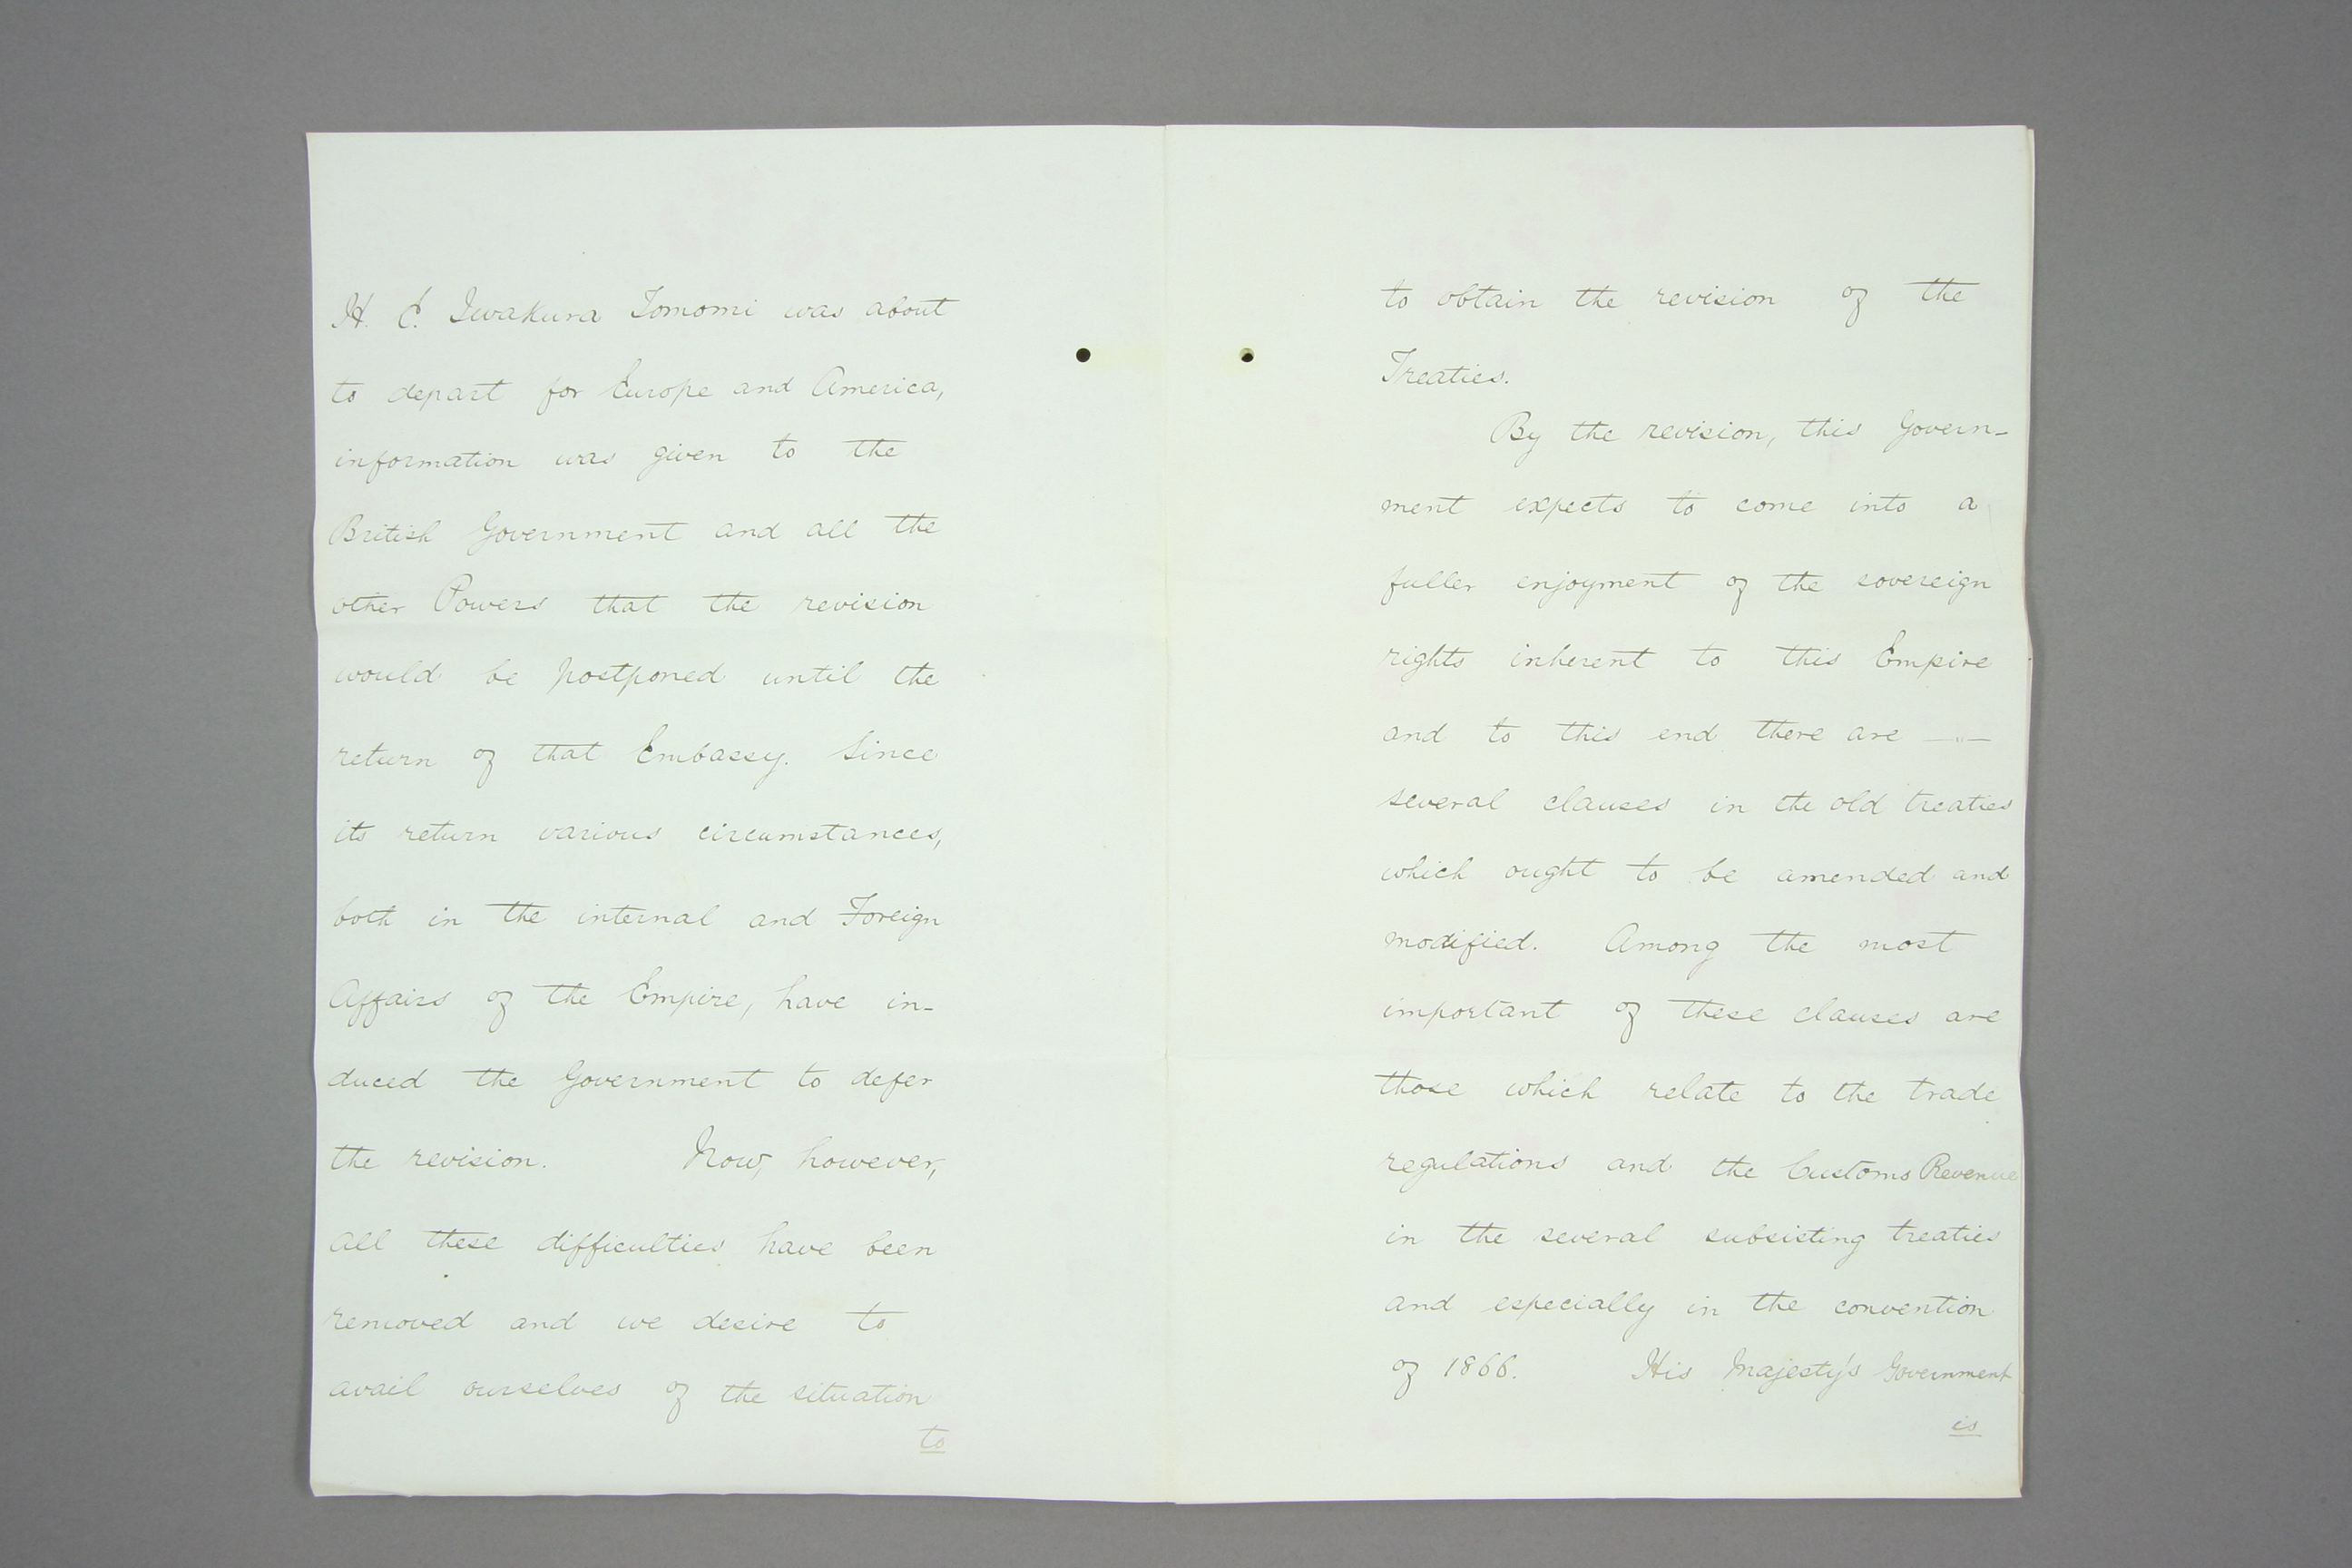 H. E. Iwakura Tomomi was about
to depart for Europe and America,
information was given to the
British Government and all the
other Powers that the revision
would be postponed until the
return of that Embassy. Since
its return various circumstances,
both in the internal and Foreign
Affairs of the Empire, have in-
duced the Government to defer
the revision. Now, however,
all these difficulties have been
removed and we desire to
avail ourselves of the situation
to
to obtain the revision of the
Treaties.
By the revision, this Govern-
ment expects to come into a
fuller enjoyment of the sovereign
rights inherent to this Empire
and to this end there are —"—
several clauses in the old treaties
which ought to be amended and
modified. Among the most
important of these clauses are
those which relate to the trade
regulations and the Customs Revenue
in the several subsisting treaties
and especially in the convention
of 1866. His Majesty's Government
is